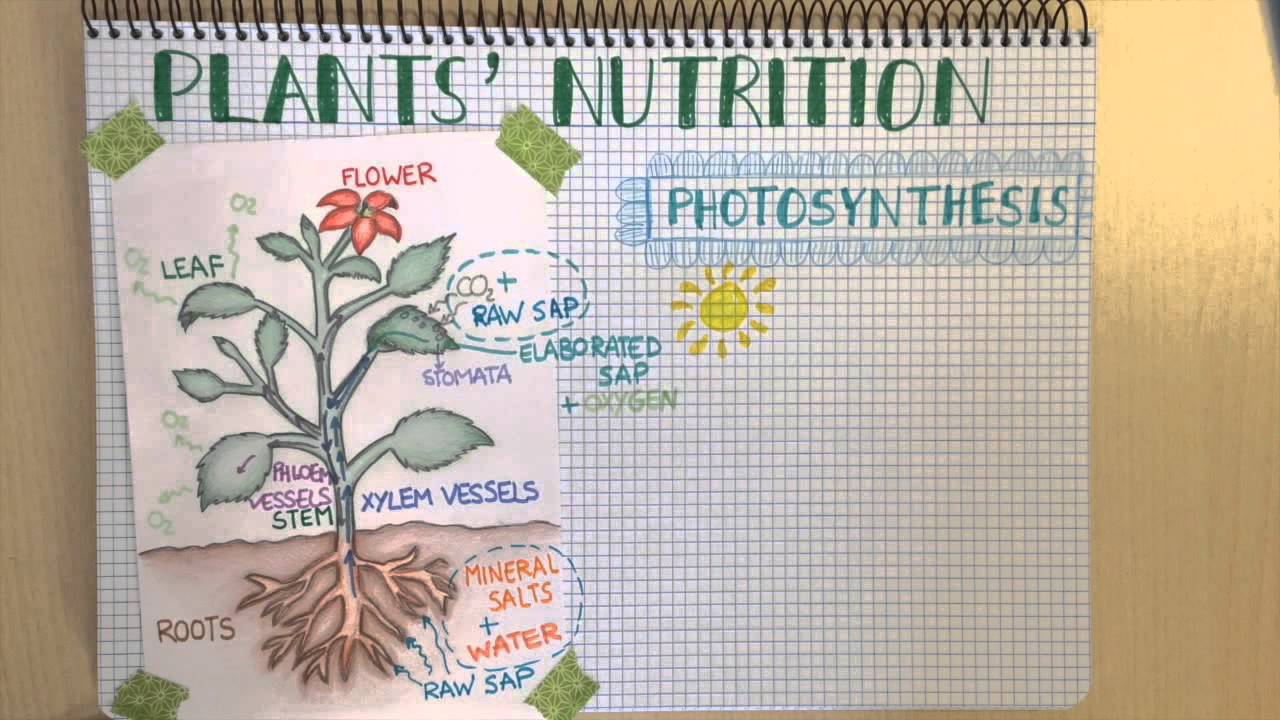 PLANTS' NUTRITION
PHOTOSYNTHESIS
FLOWER
O2
O2
LEAF
CO2 +
RAW SAP
ELABORATED
SAP
+ OXYGEN
STOMATA
O2
PHLOEM
VESSELS
STEM
XYLEM VESSELS
O2
MINERAL
SALTS
+
WATER
ROOTS
RAW SAP